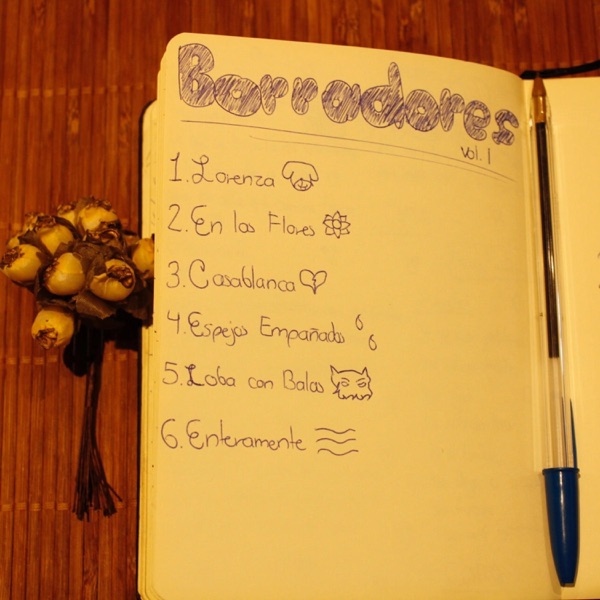 Borradores
vol. 1
1. Lorenza
2. En las Flores
3. Casablanca
4. Espejos Empañados
5. Loba con Balas
6. Enteramente